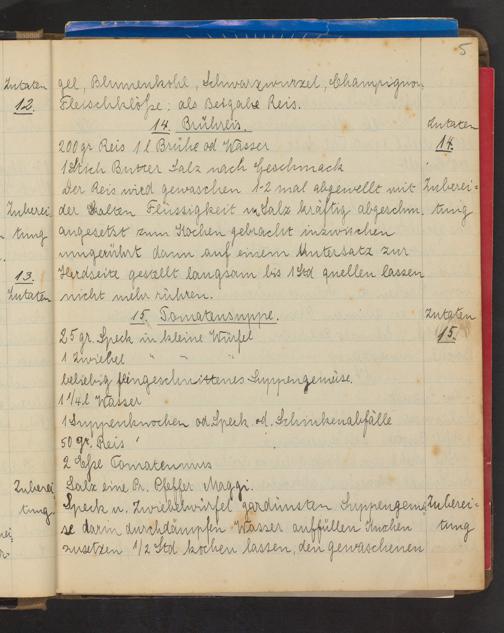 5
Zutaten
12.
Zuberei
tung
13.
Zutaten
Zuberei
tung
gel, Blumenkohl, Schwarzwurzel, Champignon,
Fleischklöße; als Beigabe Reis.
14. Brühreis.
200 gr. Reis 1 l Brühe od Wasser
1 Stich Butter Salz nach Geschmack
Der Reis wird gewaschen 1-2 mal abgewellt mit
der kalten Flüssigkeit u. Salz kräftig abgeschm.
angesetzt zum Kochen gebracht inzwischen
umgerührt dann auf einem Untersatz zur
Herdseite gestellt langsam bis 1 Std quellen lassen
nicht mehr rühren.
15. Tomatensuppe.
25 gr. Speck in kleine Würfel
1 Zwiebel " " "
beliebig feingeschnittenes Suppengemüse.
1 1/4 l Wasser
1 Suppenknochen od Speck od. Schinkenabfälle
50 gr. Reis
2 Tomatenmus
Salz eine Pr. Pfeffer Maggi.
Speck u. Zwiebelwürfel gardünsten Suppengemü
se darin durchdämpfen Wasser auffüllen Knochen
zusetzen 1/2 Std kochen lassen, den gewaschenen
Zutaten
14.
Zuberei=
tung
Zutaten
15.
Zuberei=
tung